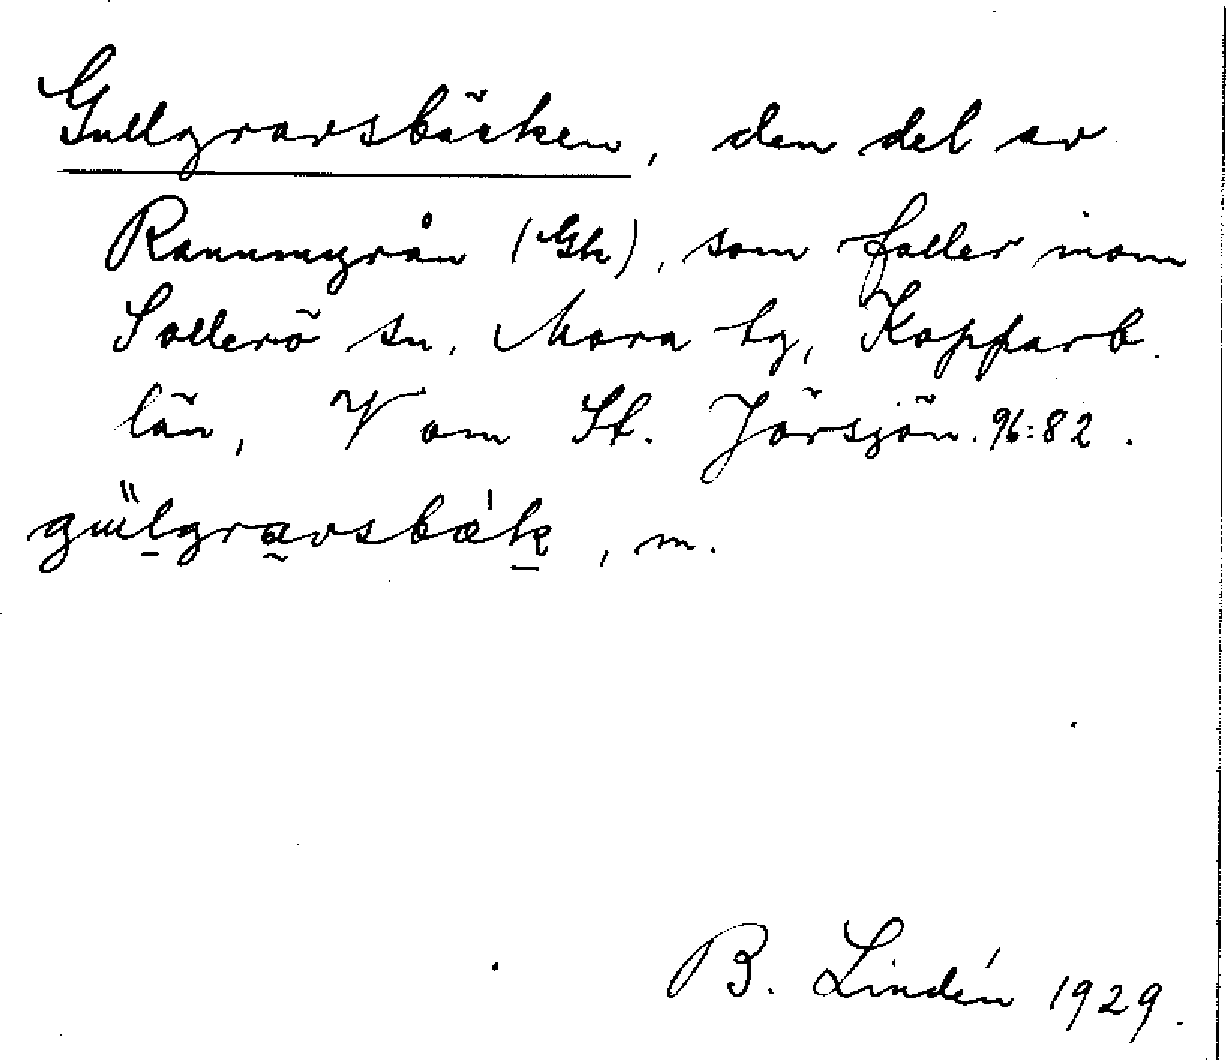 Gullgravsbäcken, den del av
Rannmyrån (Gk), som faller inom
Sollerö sn, Mora tg, Kopparb.
län, V om St. Jörsjön. 96:82.
gulgravsbäk, m.
B. Lindén 1929.